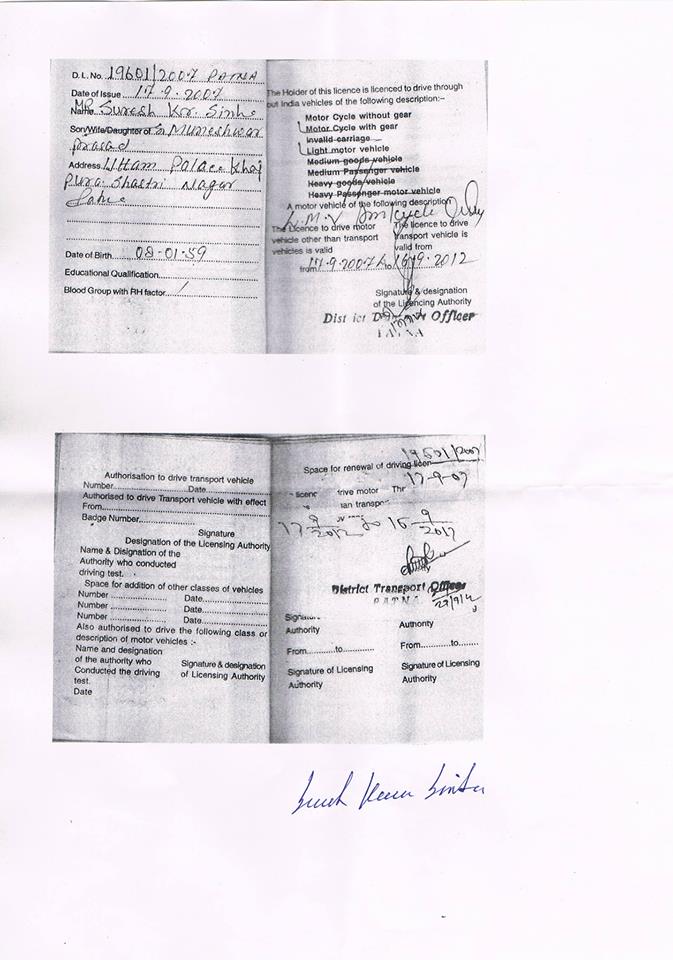 D. L. No. 19601/2007 PATNA
Date of Issue 17.9.2007
Name MR Suresh Kr. Sinha
Son/Wife/Daughter of Sri Muneshwar
Prasad
Address Uttam Palace Khaj
Pura Shastri Nagar
Patna
Date of Birth 08-01-59
Educational Qualification
Blood Group with RH factor
The Holder of this licence is licenced to drive through
out India vehicles of the following description:-
Motor Cycle without gear
Motor Cycle with gear
Invalid carriage
Light motor vehicle
Medium goods vehicle
Medium Passenger vehicle
Heavy goods vehicle
Heavy Passenger motor vehicle
A motor vehicle of the following description
L.M.V M/cycle Only
The Licence to drive motor
vehicle other than transport
vehicles is valid
from 17.9.2007 to 16.9.2012
The licence to drive
transport vehicle is
valid from
Signature & designation
of the Licencing Authority
District Officer
Authorisation to drive transport vehicle
Number Date
Authorised to drive Transport vehicle with effect
From
Badge Number
Signature
Designation of the Licensing Authority
Name & Disignation of the
Authority who conducted
driving test.
Space for addition of other classes of vehicles
Number Date
Number Date
Number Date
Also authorised to drive the following class or
description of motor vehicles :-
Name and designation
of the authority who
Conducted the driving
test.
Date
Signature & designation
of Licensing Authority
19601/2007
Space for renewal of driving licen
17-9-07
licenc rive motor The
an transpor
17 9/2012 to 16 9/2017
District Transport Officer
PATNA
Signature
Authority
Authority
From to
From to
Signature of Licensing
Authority
Signature of Licensing
Authority
Suresh Kumar Sinha